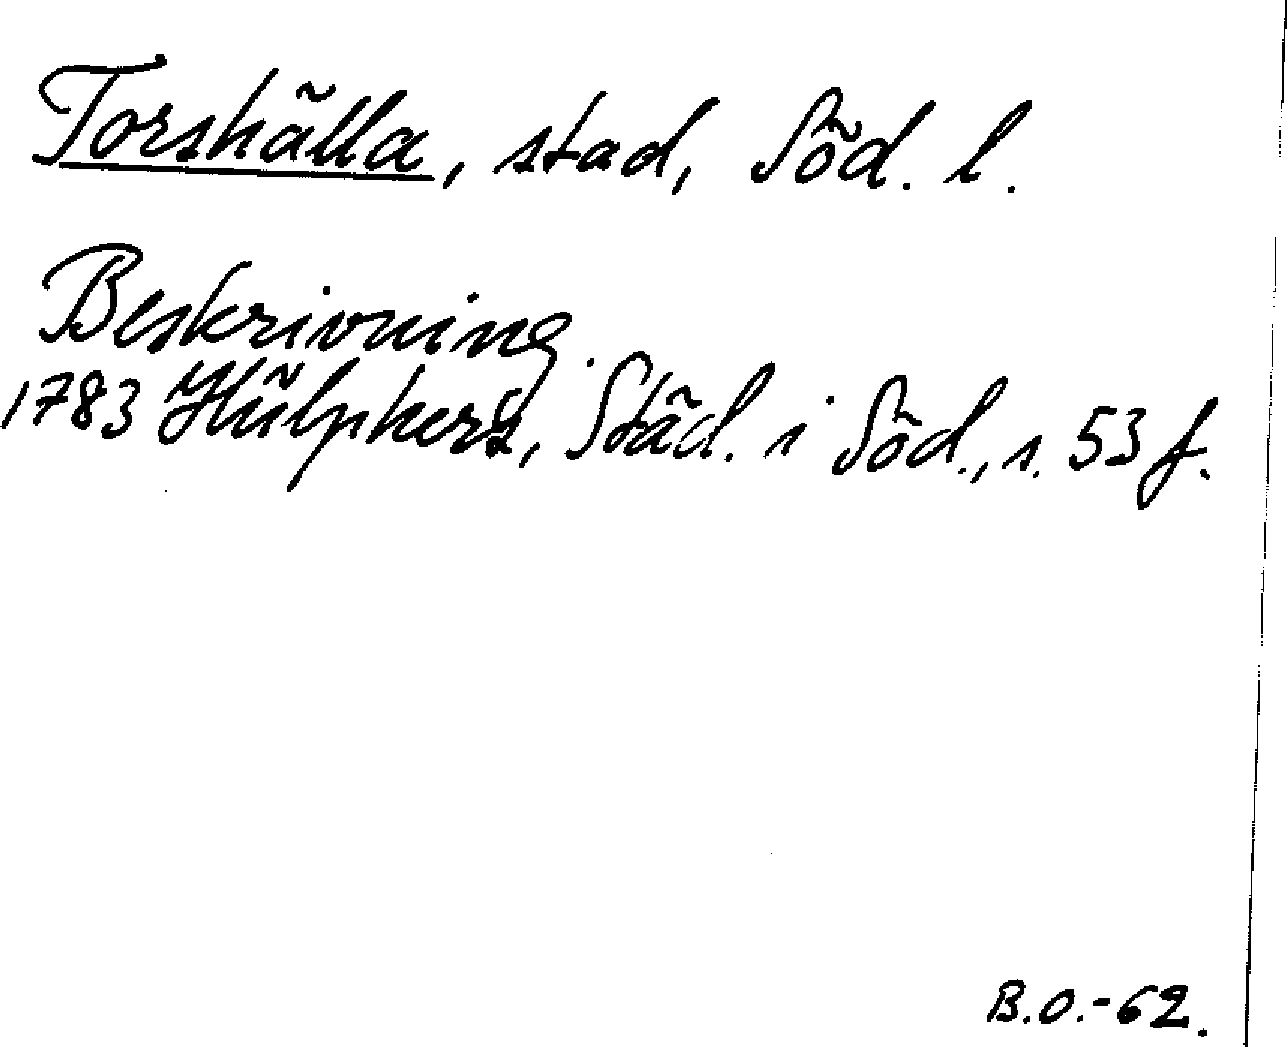 Torshälla, stad, Söd. l.
Beskrivning.
1783 Hülphers, Städ. i Söd., s. 53 f.
B.O.-62.